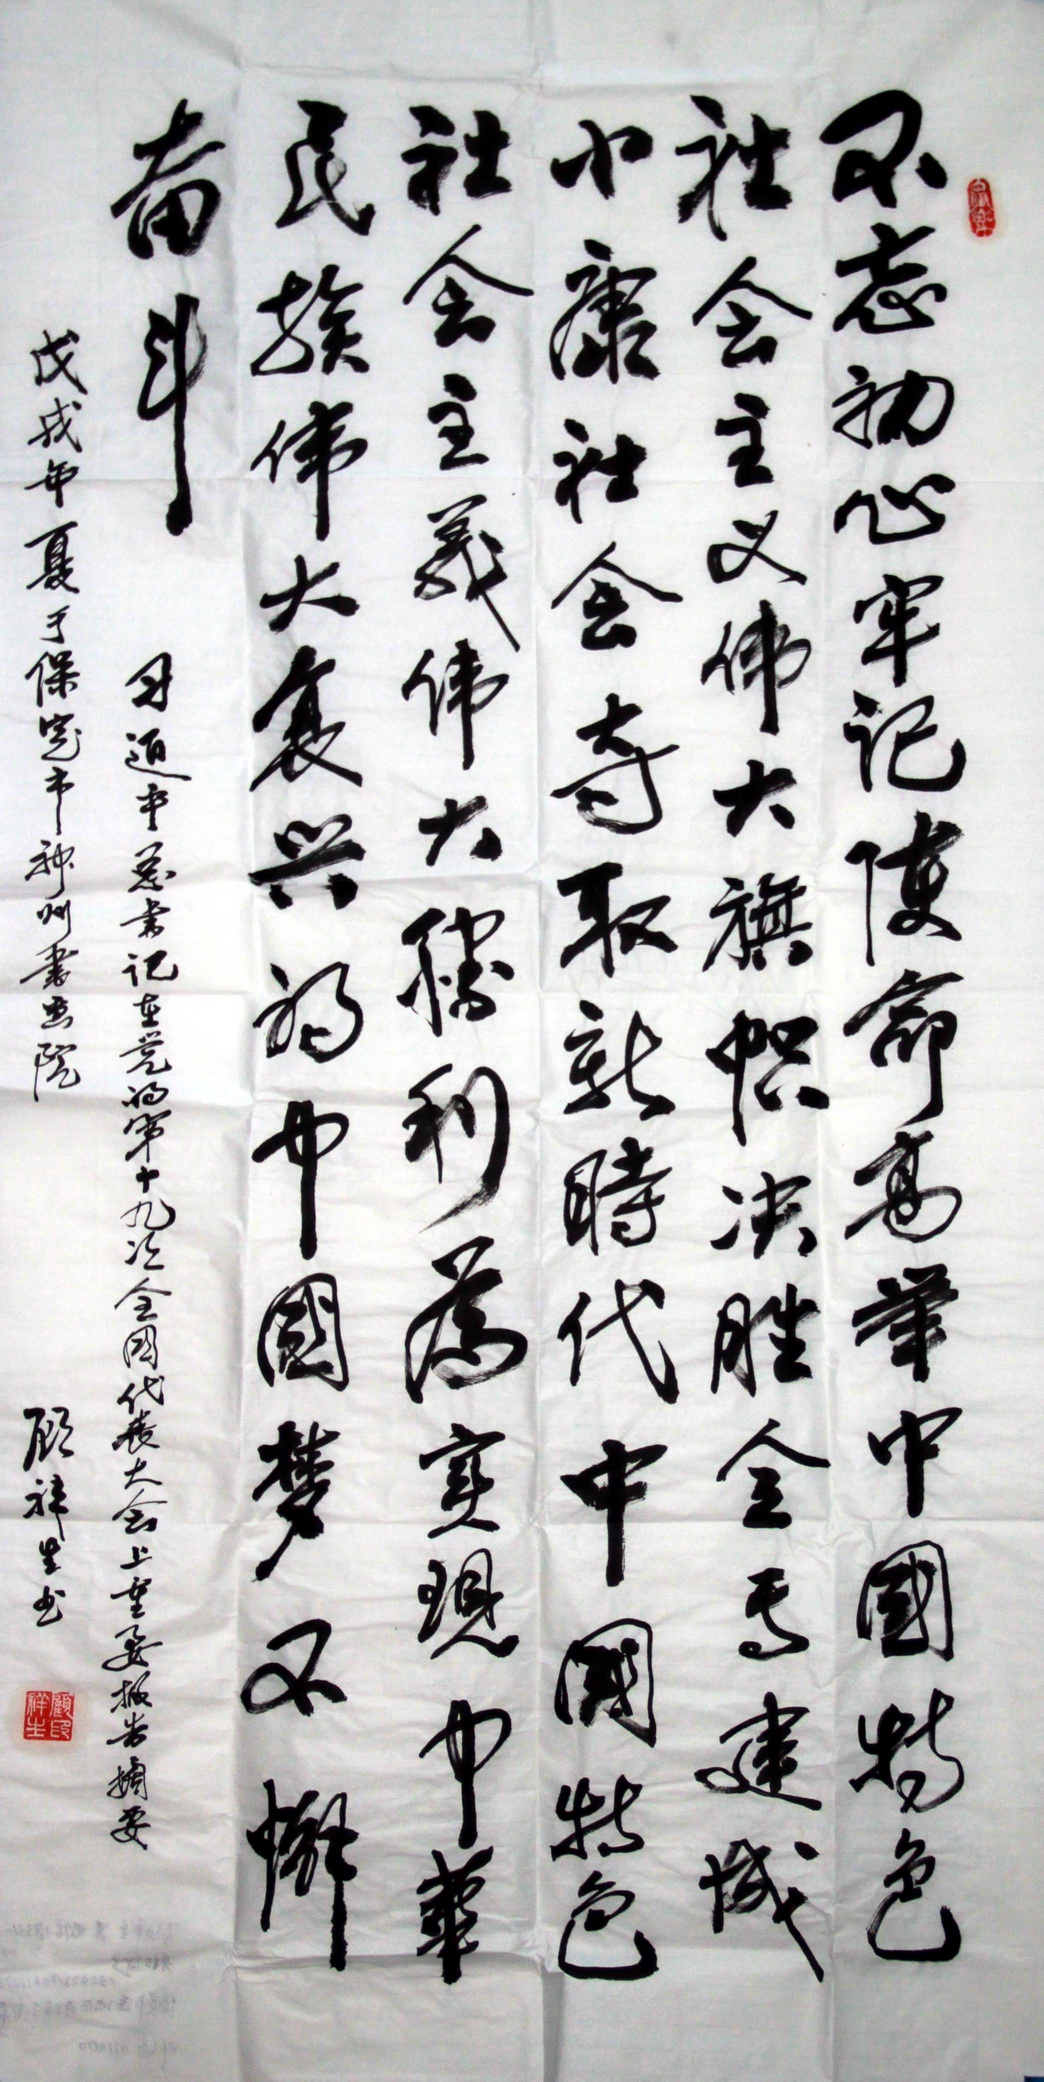 不忘初心牢记使命高举中國特色
社会主义伟大旗帜决胜全面建成
小康社会夺取新時代中國特色
社会主義伟大勝利為实現中華
民族伟大复兴的中國梦不懈
奋斗
习近平总书记在党的第十九次全国代表大会上重要报告摘要
戊戌年夏于保定市神州书画院
顾祥生书
顧祥生印